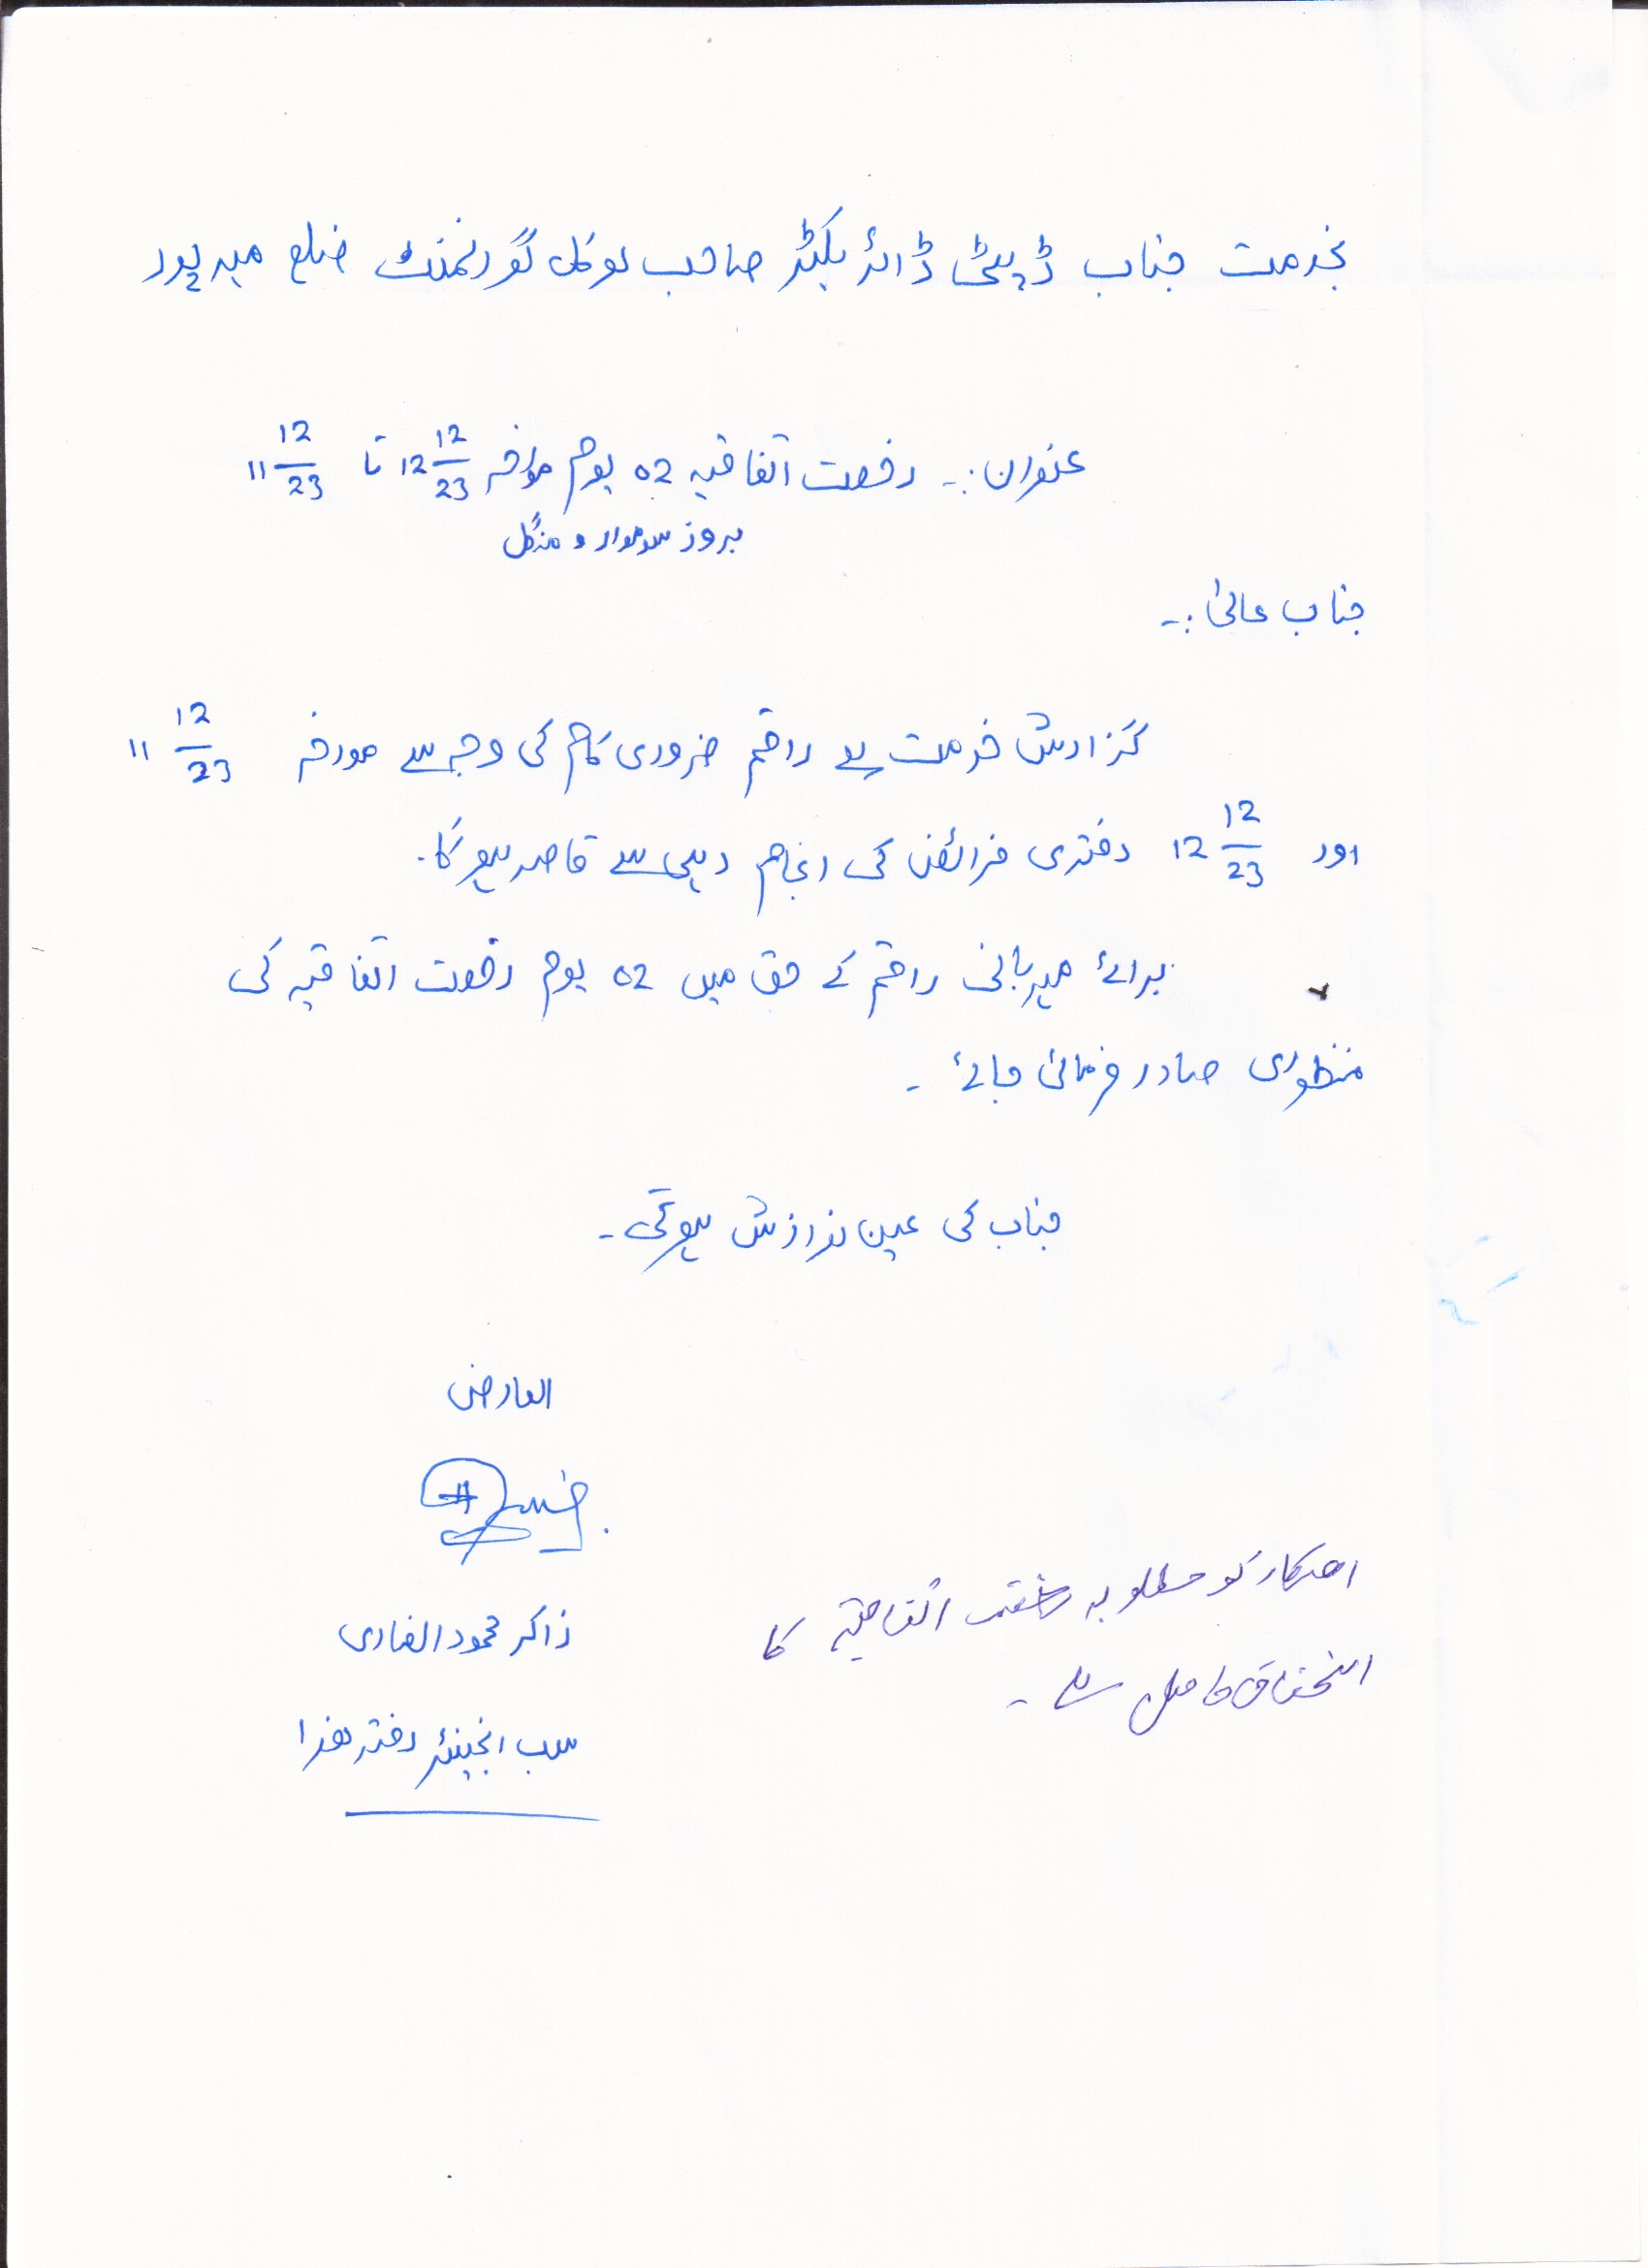 بخدمت جناب ڈپٹی ڈائریکٹر صاحب لوکل گورنمنٹ ضلع میرپور
عنوان:۔ رخصت اتفاقیہ 02 یوم مورخہ 12 12/23 تا 11 12/23
بروز سوموار و منگل
جناب عالیٰ:۔
گزارش خدمت ہے راقم ضروری کام کی وجہ سے مورخہ 11 12/23
اور 12 12/23 دفتری فرائض کی انجام دہی سے قاصر ہوگا۔
برائے مہربانی راقم کے حق میں 02 یوم رخصت اتفاقیہ کی
منظوری صادر فرمائی جائے ۔
جناب کی عین نوازش ہوگی۔
العارض
ذاکر محمود انصاری
سب انجینئر دفتر ہذا
اہلکار کو مطلوبہ رخصت اتفاقیہ کا
استحقاق حاصل ہے ۔